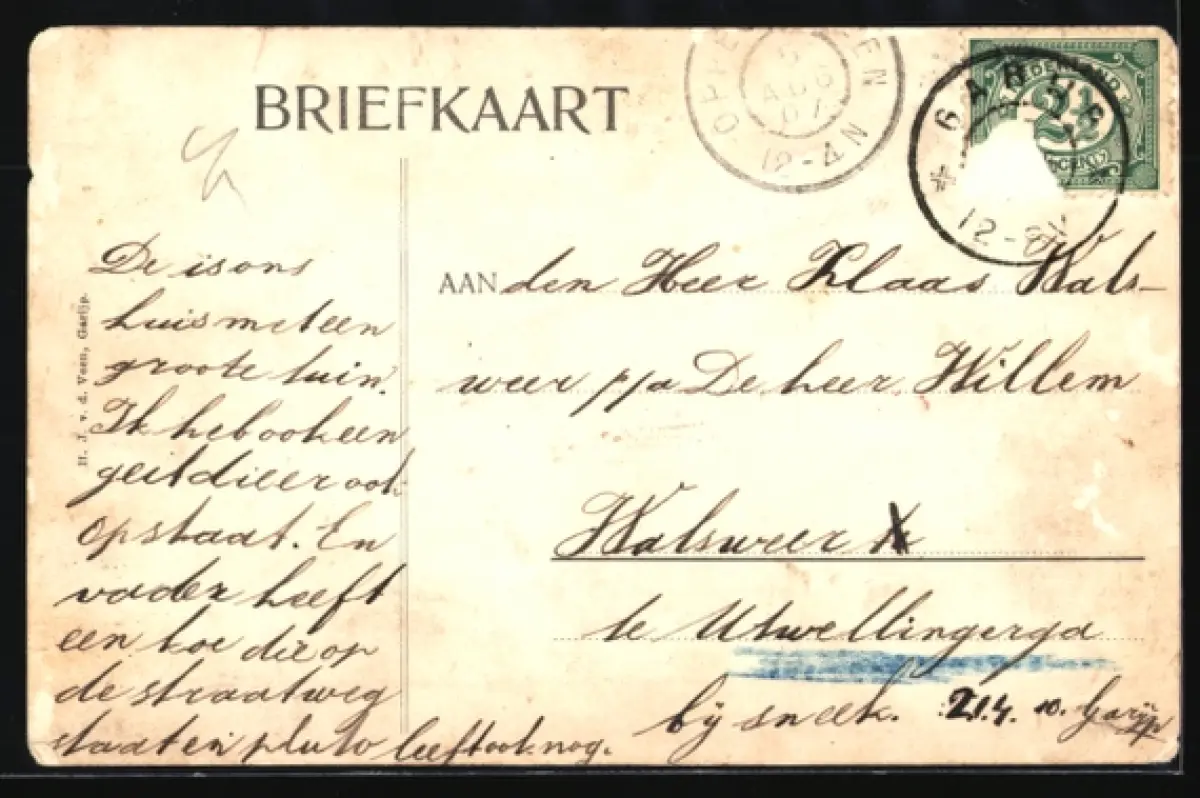 BRIEFKAART
12-4N
NEDERLAND
2½
CENT
GARIJP
12-2N
De is ons
huis met een
groote tuin.
Ik heb ook een
geit die er ook
op staat. En
vader heeft
een koe die op
de straatweg
staat en pluto leeft ook nog.
H. J. v. d. Veen, Garijp.
AAN den Heer Klaas Wals-
weer p/a De heer Willem
Walsweer
te Utwellingerga
bij sneek.
Garijp